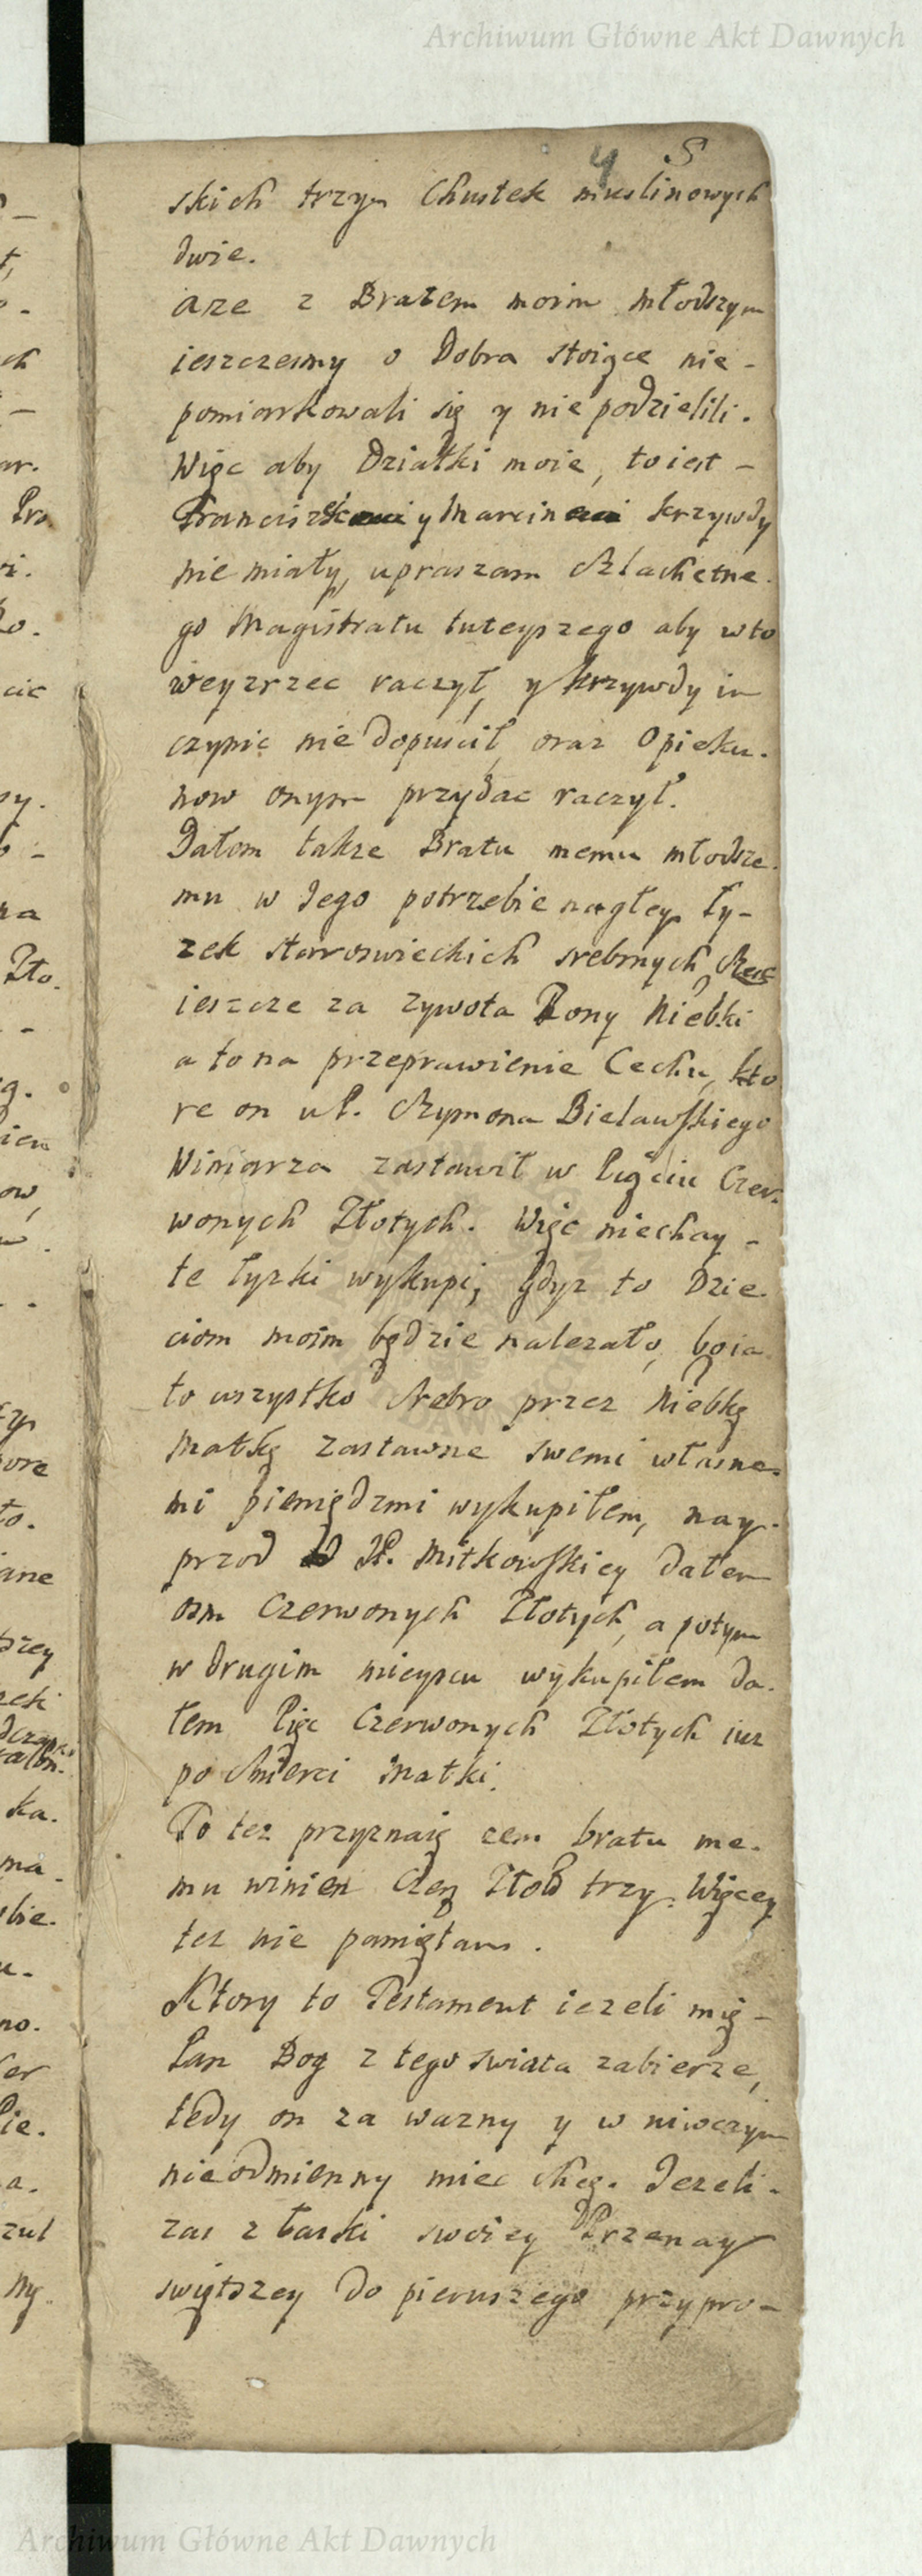 Archiwum Główne Akt Dawnych
4 5
skich trzy Chustek muslinowych
dwie.
aze z Bratem moim młodszym
ieszczesmy o Dobra stoiące nie-
pomiarkowali się y nie podzielili.
Więc aby Dziatki moie, to iest-
Franciszk y Marcin krzywdy
nie miały, upraszam Szlachetne-
go Magistratu tuteyszego aby wto
weyzrzec raczył, y krzywdy im
czynic nie dopuscił, oraz Opieku-
now onym przydac raczył.
Dałem takze Bratu memu młodsze-
mu w Jego potrzebie nagłey ły-
zek staroswieckich srebrnych Szesc
ieszcze za zywota Zony Niebki
a to na przeprawienie Cechu, kto
re on u P. Szymona Bielawskiego
Winiarza zastawił w Pięciu Czer-
wonych Złotych. Więc niechay-
te łyzki wykupi, gdyz to Dzie-
ciom moim będzie nalezało, boia
to wszystko Srebro przez Niebkę
Matkę zastawne swemi własne-
mi pieniędzmi wykupiłem, nay-
przod P. Mitkowskiey dałem
osm Czerwonych Złotych, a potym
w drugim mieyscu wykupiłem da-
łem Pięc Czerwonych Złotych iuz
po Smierci Matki.
To tez przyznaię zem bratu me-
mu winien Czer Złotd trzy. Więcey
tez nie pamiętam.
Ktory to Testament iezeli mię-
Pan Bog z tego swiata zabierze,
tedy on za wazny y w niwczym
nieodmienny miec chcę. Jezeli-
zas z łaski swoiey Przenay
swiętszey do pierwszego przypro-
Archiwum Główne Akt Dawnych